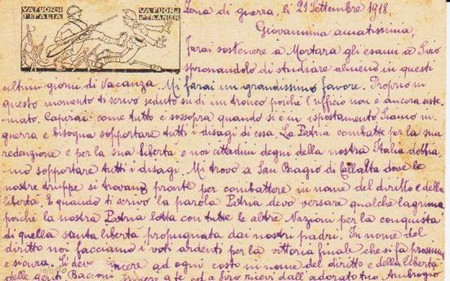 VA FUORI
D'ITALIA
VA FUORI
O STRANIER
Zona di guerra, li 21 Settembre 1918.
Giovannina amatissima,
farai sostenere a Mortara gli esami a Piro
spronandolo di studiare almeno in questi
ultimi giorni di Vacanza. Mi farai un grandissimo favore. Proprio in
questo momento ti scrivo seduto su di un tronco poiché l'ufficio non è ancora siste-
mato. Capirai come tutto è sossopra quando si è in spostamento. Siamo in
guerra e bisogna sopportare tutti i disagi di essa. La Patria combatte per la sua
redenzione e per la sua libertà e noi cittadini degni della nostra Italia dobbia-
mo sopportare tutti i disagi. Mi trovo a San Biagio di Callalta dove le
nostre truppe si trovano pronte per combattere in nome del diritto e della
libertà. E quando ti scrivo la parola Patria devo versare qualche lagrima
poiché la nostra Patria lotta con tutte le altre Nazioni per la conquista
di quella santa libertà propugnata dai nostri padri. In nome del
diritto noi facciamo i voti ardenti per la vittoria finale che si fa prossima
e sicura. Si deve vincere ad ogni costo in nome del diritto e della libertà
delle genti. Bacioni a te ed a Piro ricevi dall'adorato tuo Ambrogio